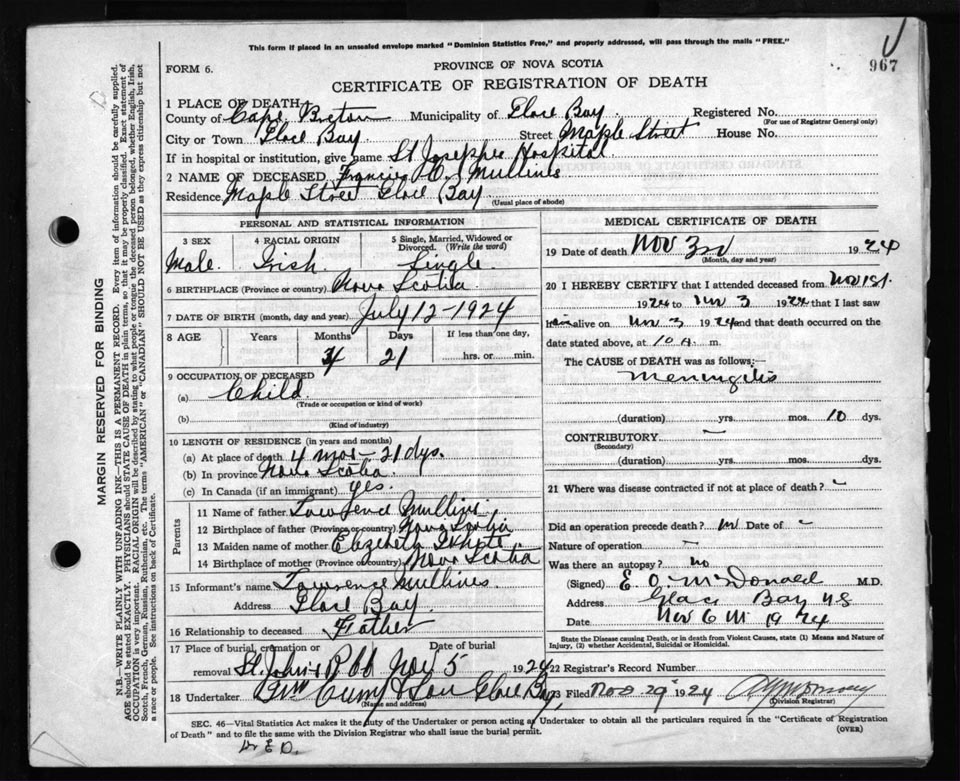 This form if placed in an unsealed envelope marked "Dominion Statistics Free," and properly addressed, will pass through the mails "FREE."
967
FORM 6.
PROVINCE OF NOVA SCOTIA
CERTIFICATE OF REGISTRATION OF DEATH
1 PLACE OF DEATH
County of Cape Breton Municipality of Glace Bay Registered No.
(For use of Registrar General only)
City or Town Glace Bay Street Maple Street House No.
If in hospital or institution, give name St Josephs Hospital
2 NAME OF DECEASED Francis Mullins
Residence Maple Street Glace Bay
(Usual place of abode)
PERSONAL AND STATISTICAL INFORMATION
3 SEX 4 RACIAL ORIGIN 5 Single, Married, Widowed or Divorced. (Write the word)
Male. Irish Single
6 BIRTHPLACE (Province or country) Nova Scotia
7 DATE OF BIRTH (month, day and year) July 12-1924
8 AGE Years Months Days If less than one day,
4 21 hrs. or min.
9 OCCUPATION OF DECEASED
(a) Child
(Trade or occupation or kind of work)
(b)
(Kind of industry)
10 LENGTH OF RESIDENCE (in years and months)
(a) At place of death 4 mos - 21 dys.
(b) In province Nova Scotia
(c) In Canada (if an immigrant) yes.
Parents
11 Name of father Lawrence Mullins
12 Birthplace of father (Province or country) Nova Scotia
13 Maiden name of mother Elizabeth
14 Birthplace of mother (Province or country) Nova Scotia
15 Informant's name Lawrence Mullins
Address Glace Bay
16 Relationship to deceased Father
17 Place of burial, cremation or removal Date of burial
St. John's Nov 5 1924
18 Undertaker Curry & Son Glace Bay
(Name and address)
MEDICAL CERTIFICATE OF DEATH
19 Date of death Nov 3rd 1924
(Month, day and year)
20 I HEREBY CERTIFY that I attended deceased from Nov 1st.
1924 to Nov 3 1924 that I last saw
him alive on Nov 3 1924 and that death occurred on the
date stated above, at 10 A. m.
The CAUSE of DEATH was as follows:—
Meningitis
(duration) yrs. mos. 10 dys.
CONTRIBUTORY —
(Secondary)
(duration) yrs. mos. dys.
21 Where was disease contracted if not at place of death? -
Did an operation precede death? no Date of -
Nature of operation -
Was there an autopsy? no
(Signed) E. O. McDonald M.D.
Address Glace Bay NS
Nov 6 th 1924
State the Disease causing Death, or in death from Violent Causes, state (1) Means and Nature of Injury, (2) whether Accidental, Suicidal or Homicidal.
22 Registrar's Record Number
23 Filed Nov 29 1924
(Division Registrar)
SEC. 46—Vital Statistics Act makes it the duty of the Undertaker or person acting as Undertaker to obtain all the particulars required in the "Certificate of Registration
of Death" and to file the same with the Division Registrar who shall issue the burial permit.
(OVER)
MARGIN RESERVED FOR BINDING
N.B.—WRITE PLAINLY WITH UNFADING INK—THIS IS A PERMANENT RECORD. Every item of information should be carefully supplied.
AGE should be stated EXACTLY. PHYSICIANS should STATE CAUSE OF DEATH in plain terms, so that it may be properly classified. Exact statement of
OCCUPATION is very important. RACIAL ORIGIN will be described by stating to what people or tongue the deceased person belonged, whether English, Irish,
Scotch, French, German, Russian, Ruthenian, etc. The terms "AMERICAN" or "CANADIAN" SHOULD NOT BE USED as they express citizenship but not
a race or people. See instructions on back of Certificate.